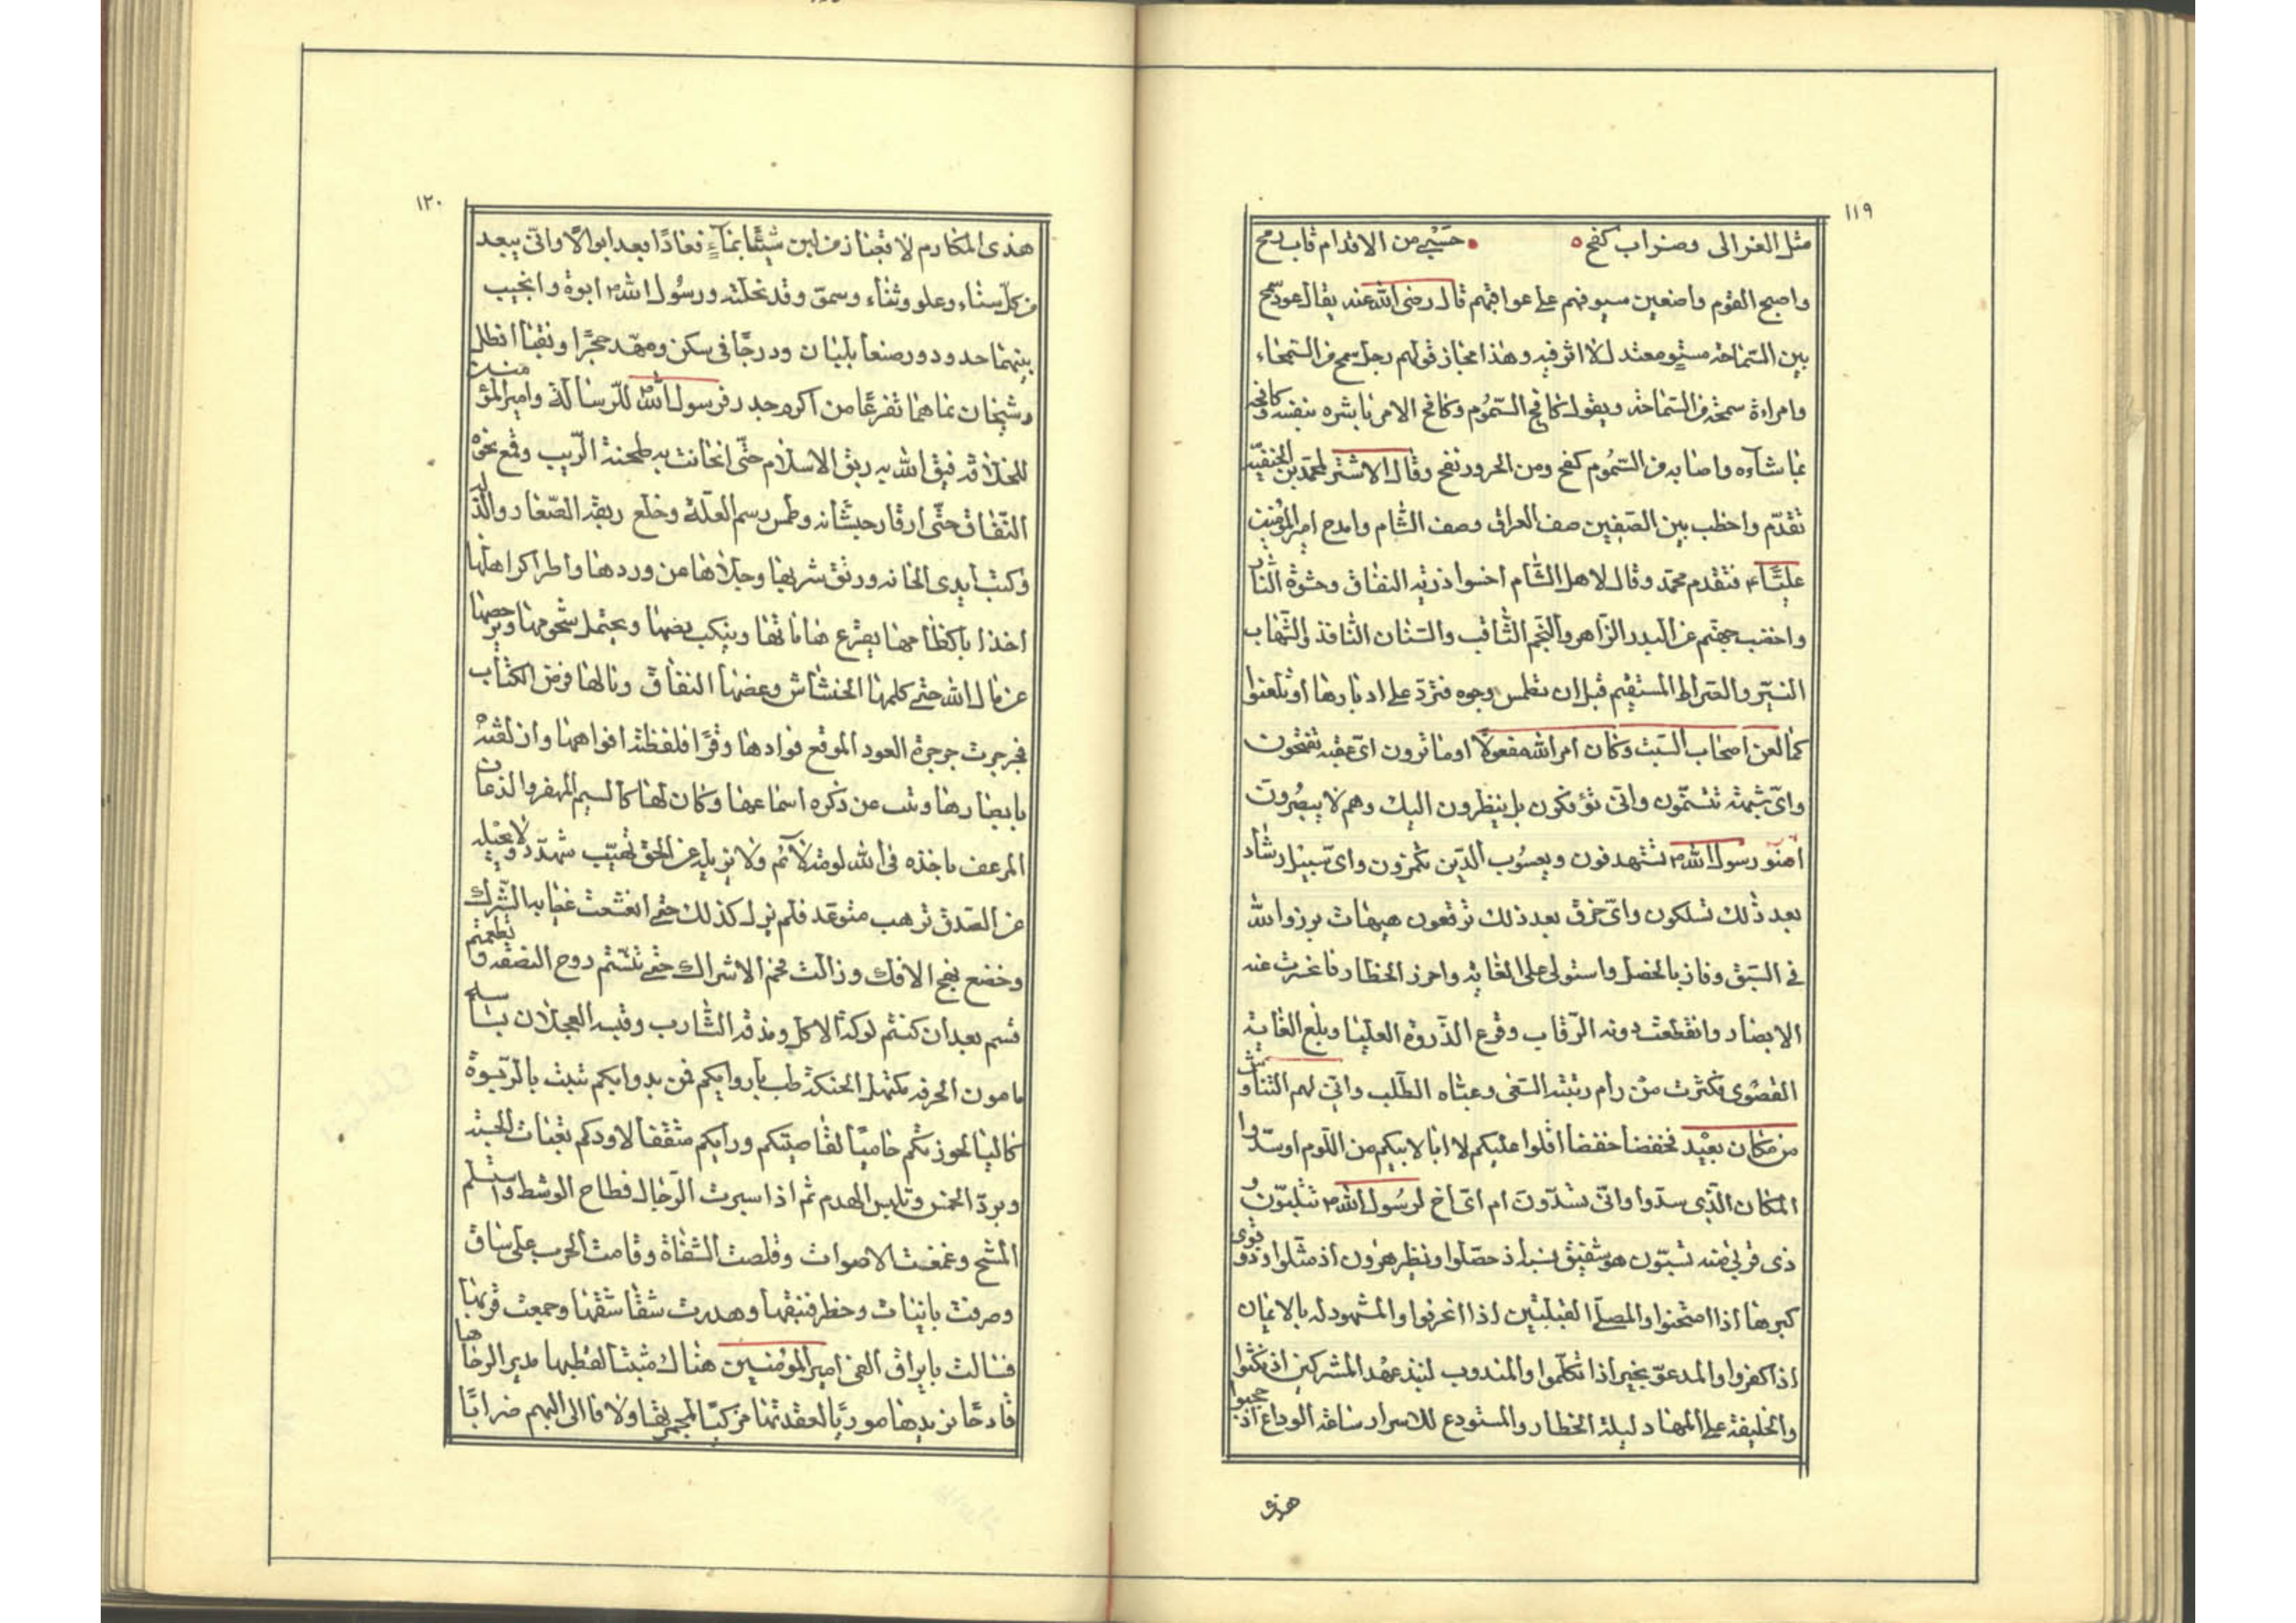 ١١٩
مثل الغزالى وضراب كفح ٥ • حَسْبي من الاقدام قاب رمح
واصبح القوم واضعين سيوفهم على عواتقهم قال رضى الله عنه يقال عود سمح
بين السّماحة مستوٍ معتدل لا اثر فيه وهذا مجاز قولهم رجل سمح من السّمحاء
وامراءة سمحة من السّماحة ويقول كافح السّمُوم وكافح الامر باشره بنفسه وكافحه
بما شاءه واصابه من السّمُوم كفح ومن الحرور نفح وقال الاشتر لمحمّد بن الحنفيّة
تقدّم واخطب بين الصّفين صف العراق وصف الشام وامدح امير المؤمنين
عليّاً ع فتقدم محمّد وقال لاهل الشام اخسوا ذرّية النفاق وحشوة النّار
وخضب جهنّم عن البدر الزاهر والنّجم الثاقب والسّنان النافذ والشّهاب
النيّر والصّراط المستقيم قبل ان تطمس وجوه فتردّ على ادبارها او تلعنوا
كما لعن اصحاب السّبت وكان امر الله مفعولًا اوما ترون اىّ عقبة تقتحمون
واىّ شيمة تتسنّمون وانّى تؤفكون بل ينظرون اليك وهم لا يبصُرون
اصنو رسول الله ص تستهدفون ويعسُوب الدّين تلمزون واىّ سبيل رشاد
بعد ذٰلك تسلكون واىّ خرق بعد ذلك ترقعون هيهات برز والله
فى السّبق وفاز بالخصل واستولى على الغاية واحرز الخطار فانحسرت عنه
الابصار وانقطعت دونه الرّقاب وفرع الذّروة العليا وبلغ الغاية
القصْوى فكثرت من رام رتبته السّعى وعناه الطّلب وانّى لهم التناوش
من مكان بعيْد فخفضا خفضا اقلّوا عليكم لا ابا لابيكم من اللّوم او سدّوا
المكان الّذى سدّوا وانّى تسدّون ام اىّ اخ لرسُول الله ص تثلبون
ذى قربى منه تسبّون هو شقيق نسبه اذ حصّلوا ونظير هٰرون اذ مثّلوا وذو قوى
كبرها اذا امتحنوا والمصلّى القبلتين اذا انحرفوا والمشهود له بالايمان
اذا كفروا والمدعوّ بخير اذا تكلّموا والمندوب لنبذ عهد المشركين اذ نكثوا
والخليفة على المهاد ليلة الخطار والمستودع للاسرار ساعة الوداع اذ حجبوا
هذى
١٢٠
هذى المكارم لا قعبان من لبن شيبا بماءٍ فعادا بعد ابوالا وانّى يبعد
من كلّ سناء وعلو وثناء وسموّ وقد نحلته ورسُول الله ص ابوة وانجبب
بينهما جدود ورضعا بلبان ودرجا فى سكن ومهّد حجرًا وتقيّا انظل
رشيخان نماهما تفرعا من اكرم جدر فرسول الله ص للرّسالة وامير المؤمنين
للخلافة فيق الله به ريق الاسلام حتّى انخانت به طمحنة الرّيب وقمع نخوة
النّفاق حتّى ارقار حبشانه وطمس رسم العلّة وخلع ربقة الصّغار والذلّة
وكبت ايدى الخانه ورنق شربها وحلأها عن وردها واطرا كراهلها
اخذا باكظامها يقرع هاماتها وينكب بضها ويحتمل شحومها ويرحضها
عن مال الله حتّى كلمها الخشاش وعضها النفاق ونالها فرض الكتاب
فجرجرت جرجرة العود الموقع فزادها وقرًا فلفظته افواهها وازلقته
بابصارها ونبت عن ذكره اسماعها وكان لها كالسم المقر والذعاف
المرعف ما ياخذه فى الله لومة لآئم ولا يزيله عن الحق تهيّب متهدّد ولا يحيله
عن الصّدق ترهب متوعّد فلم يزل كذلك حتّى انقشعت غيابه الشّرك
وخضع نخع الافك وزالت قحم الاشراك حتّى تنسّمتم روح النصفة وتطعمتم
قسم بعد ان كنتم لوكة الاكل ومذقة الشارب وقبسة العجلان بسياسة
مامون الحرفة مكتهل الحنكة طب بادوايكم قمن بدوايكم تبيت بالرّبوة
كاليا لحوزتكم حاميًا لقاصيتكم ورايكم مثقفا لاودكم يقتات الجبنة
ويردّ الخمس ويلبس الهدم ثم اذا سبرت الرّجال فطاح الوشيظ واستسلم
المشيح وغمغمت الاصوات وقلصت الشفاة وقامت الحرب على ساق
وصرفت بانيات وخطر فنيقها وهدرت شقاشقها وجمعت قربها
فسالت بابراق الفى امير المؤمنين هناك مثبتا لقطبها مدير الرحاها
قادحًا بزندها موريًا لعقدتها مزكيًا لجمرتها ولافا الى البهم ضرابا